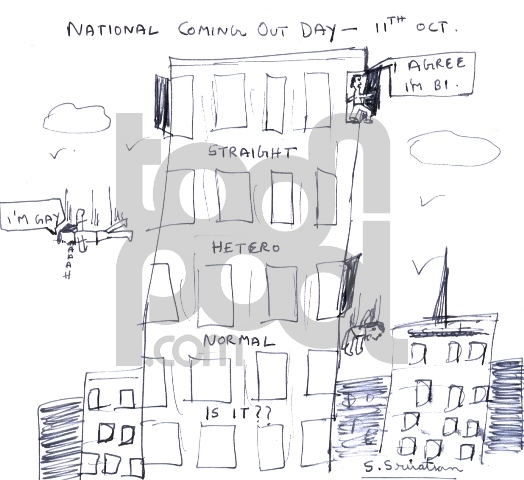 NATIONAL COMING OUT DAY - 11TH OCT.
I AGREE
I'M BI.
STRAIGHT
I'M GAY
AAAH
HETERO
NORMAL
IS IT??
toonpool
.com